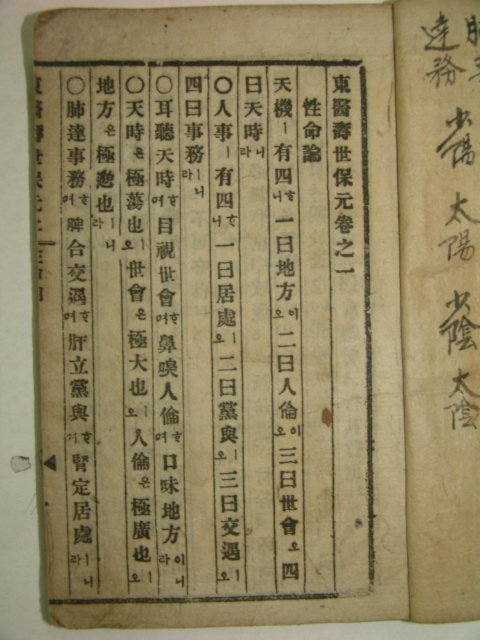 達務
少陽 太陽 少陰 太陰
東醫壽世保元卷之一
性命論
天機ㅣ有四ᄒᆞ니一曰地方이오二曰人倫이오三曰世會오四
曰天時니라
○人事ㅣ有四ᄒᆞ니一曰居處오二曰黨與오三曰交遇ㅣ오
四曰事務ㅣ니라
○耳聽天時ᄒᆞ며目視世會ᄒᆞ며鼻嗅人倫ᄒᆞ며口味地方이니라
○天時은極蕩也ㅣ오世會은極大也ㅣ오人倫은極廣也ㅣ오
地方은極邈也ㅣ니라
○肺達事務ᄒᆞ며脾合交遇ᄒᆞ며肝立黨與ᄒᆞ며腎定居處ㅣ니라
東醫壽世保元